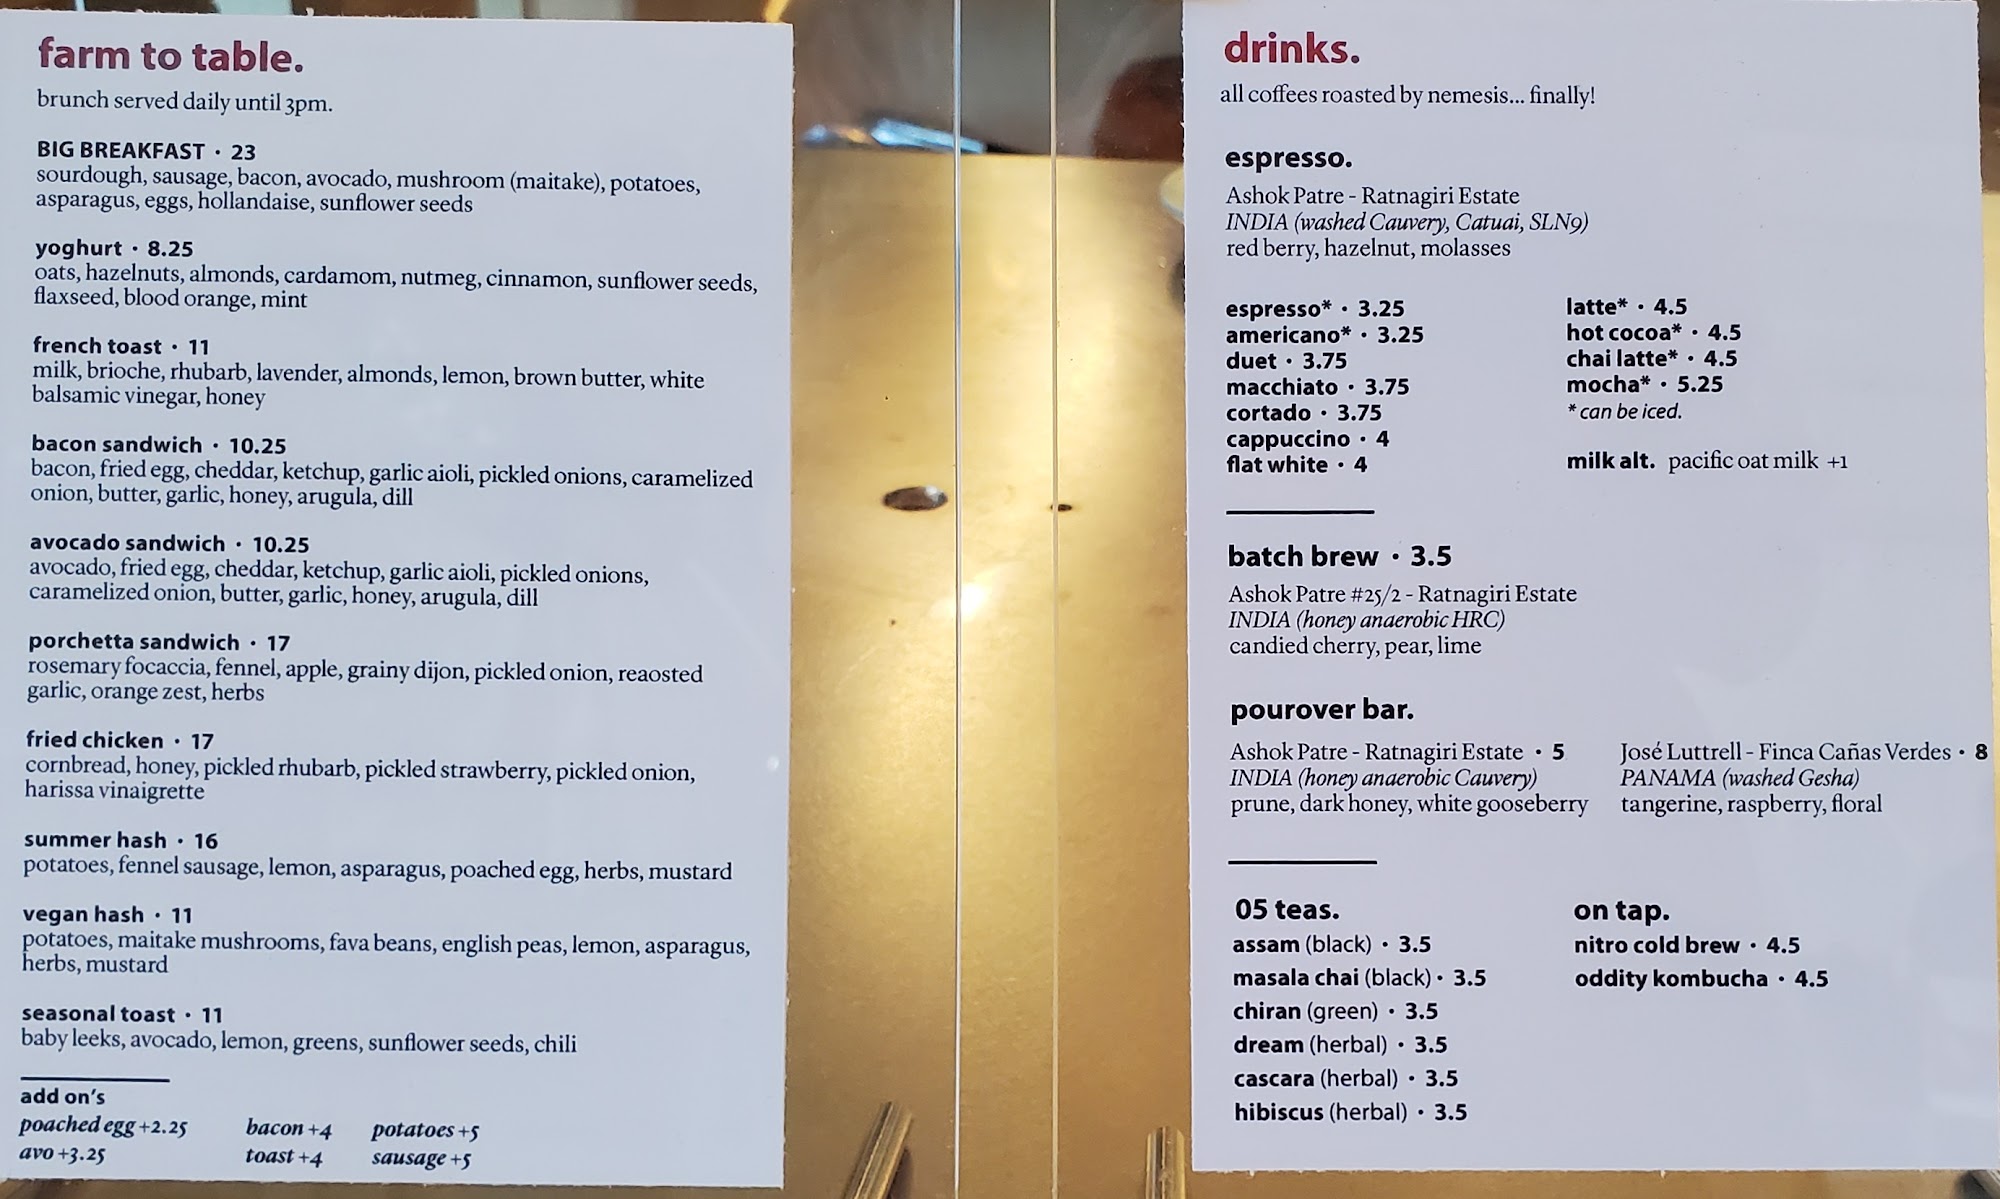 farm to table.
brunch served daily until 3pm.
BIG BREAKFAST · 23
sourdough, sausage, bacon, avocado, mushroom (maitake), potatoes,
asparagus, eggs, hollandaise, sunflower seeds
yoghurt · 8.25
oats, hazelnuts, almonds, cardamom, nutmeg, cinnamon, sunflower seeds,
flaxseed, blood orange, mint
french toast · 11
milk, brioche, rhubarb, lavender, almonds, lemon, brown butter, white
balsamic vinegar, honey
bacon sandwich · 10.25
bacon, fried egg, cheddar, ketchup, garlic aioli, pickled onions, caramelized
onion, butter, garlic, honey, arugula, dill
avocado sandwich · 10.25
avocado, fried egg, cheddar, ketchup, garlic aioli, pickled onions,
caramelized onion, butter, garlic, honey, arugula, dill
porchetta sandwich · 17
rosemary focaccia, fennel, apple, grainy dijon, pickled onion, reaosted
garlic, orange zest, herbs
fried chicken · 17
cornbread, honey, pickled rhubarb, pickled strawberry, pickled onion,
harissa vinaigrette
summer hash · 16
potatoes, fennel sausage, lemon, asparagus, poached egg, herbs, mustard
vegan hash · 11
potatoes, maitake mushrooms, fava beans, english peas, lemon, asparagus,
herbs, mustard
seasonal toast · 11
baby leeks, avocado, lemon, greens, sunflower seeds, chili
add on's
poached egg +2.25 bacon +4 potatoes +5
avo +3.25 toast +4 sausage +5
drinks.
all coffees roasted by nemesis... finally!
espresso.
Ashok Patre - Ratnagiri Estate
INDIA (washed Cauvery, Catuai, SLN9)
red berry, hazelnut, molasses
espresso* · 3.25
americano* · 3.25
duet · 3.75
macchiato · 3.75
cortado · 3.75
cappuccino · 4
flat white · 4
latte* · 4.5
hot cocoa* · 4.5
chai latte* · 4.5
mocha* · 5.25
* can be iced.
milk alt. pacific oat milk +1
batch brew · 3.5
Ashok Patre #25/2 - Ratnagiri Estate
INDIA (honey anaerobic HRC)
candied cherry, pear, lime
pourover bar.
Ashok Patre - Ratnagiri Estate · 5
INDIA (honey anaerobic Cauvery)
prune, dark honey, white gooseberry
José Luttrell - Finca Cañas Verdes · 8
PANAMA (washed Gesha)
tangerine, raspberry, floral
05 teas.
assam (black) · 3.5
masala chai (black) · 3.5
chiran (green) · 3.5
dream (herbal) · 3.5
cascara (herbal) · 3.5
hibiscus (herbal) · 3.5
on tap.
nitro cold brew · 4.5
oddity kombucha · 4.5